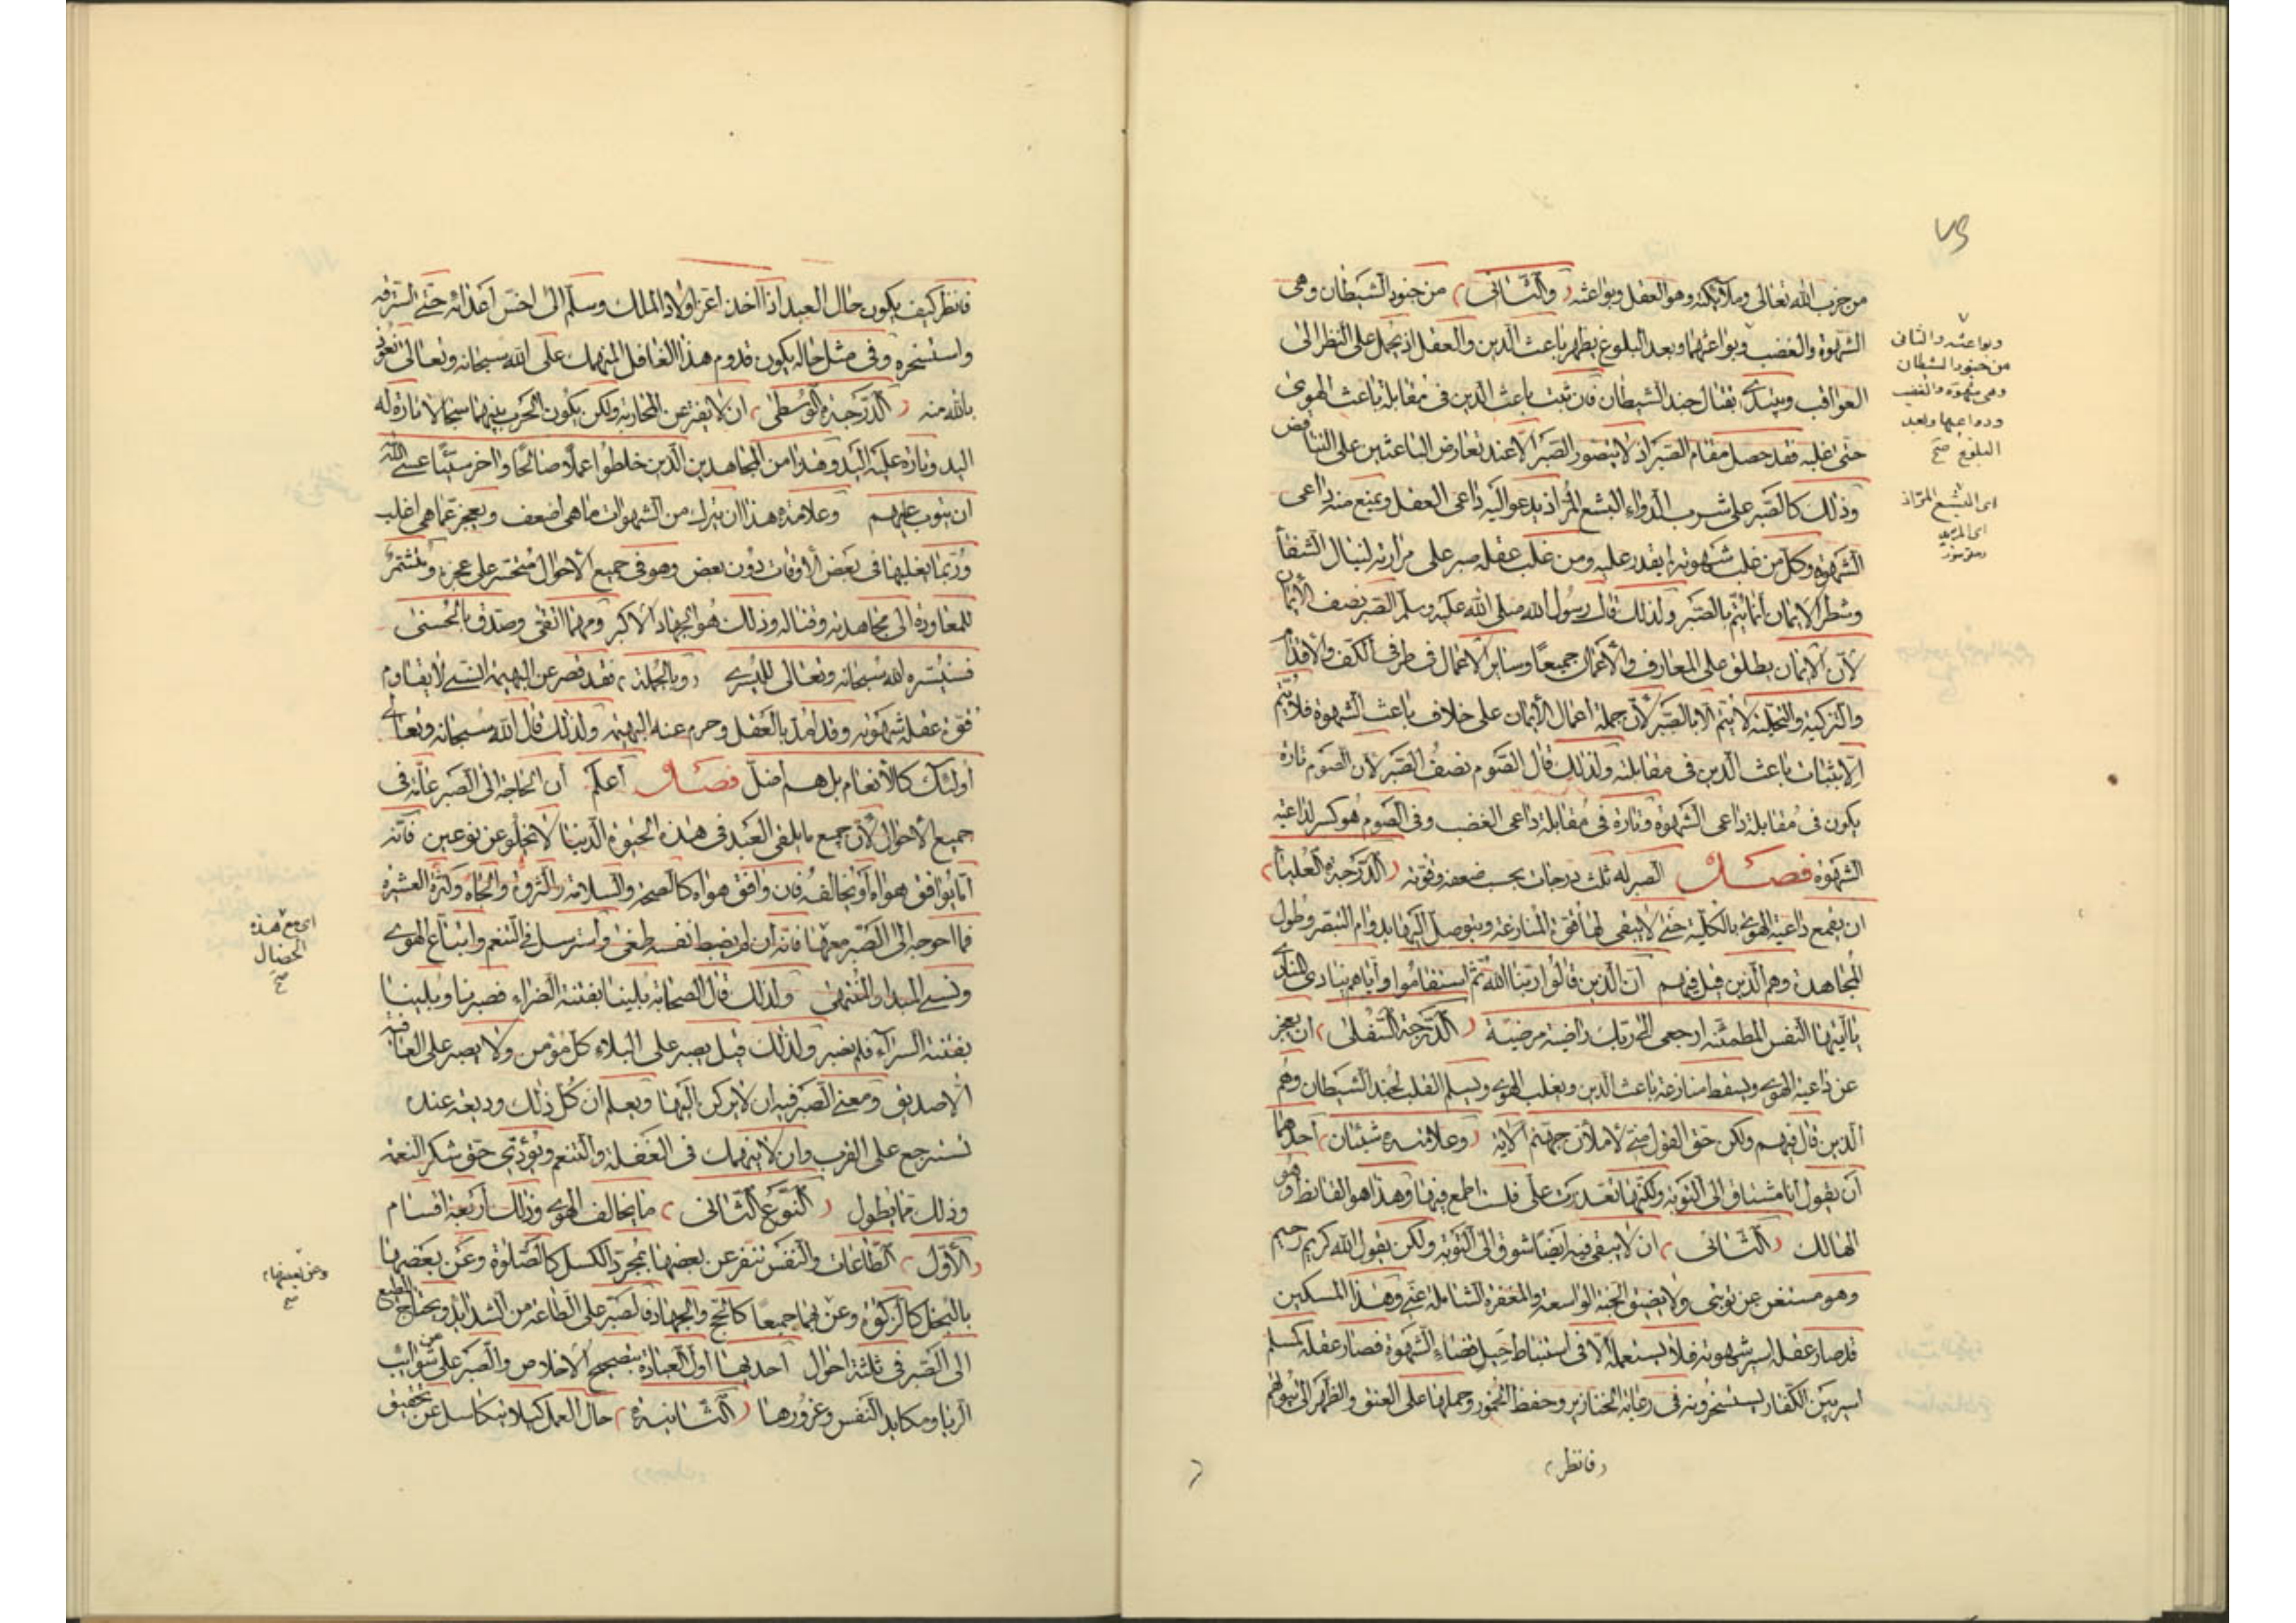 ٧٥
من حزب الله تعالى وملائكته وهو العقل وبواعثه (والثانى) من جنود الشيطان وهى
الشهوة والغضب وبواعثهما وبعد البلوغ يظهر باعث الدين والعقل اذ يحمل على النظر الى
العواقب ويبتدئ بقتال جند الشيطان فان ثبت باعث الدين فى مقابلة باعث الهوى
حتى غلبه فقد حصل مقام الصبر اذ لا يتصور الصبر الا عند تعارض الباعثين على التناقض
وذلك كالصبر على شرب الدواء البشع المر اذ يدعو اليه داعى العقل ويمنع منه داعى
الشهوة وكل من غلب شهوته يقدر عليه ومن غلب عقله صبر على مرارته لينال الشفأ
وشطر الايمان انما يتم بالصبر ولذلك قال رسول الله صلى الله عليه وسلم الصبر نصف الايمان
لان الايمان يطلق على المعارف والاعمال جميعا وساير الاعمال فى طرفى الكف والاقدام
والتزكية والتحلية لا يتم الا بالصبر لان جملة اعمال الايمان على خلاف باعث الشهوة فلا يتم
الا بثبات باعث الدين فى مقابلته ولذلك قال الصوم نصف الصبر لان الصوم تارة
يكون فى مقابلة داعى الشهوة وتارة فى مقابلة داعى الغضب وفى الصوم هو كسر لداعية
الشهوة فصل الصبر له ثلث درجات بحسب ضعفه وقوته (الدرجة العليا)
ان يقمع داعية الهوى بالكلية حتى لا يبقى لها قوة المنازعة ويتوصل اليها بدوام التبصر وطول
المجاهدة وهم الذين قيل فيهم ان الذين قالوا ربنا الله ثم استقاموا واياهم ينادى المنادى
يا ايتها النفس المطمئنة ارجعى الى ربك راضية مرضية (الدرجة السفلى) ان يعجز
عن داعية الهوى ويسقط منازعة باعث الدين ويغلب الهوى ويسلم القلب لجند الشيطان وهم
الذين قال فيهم ولكن حق القول منى لاملان جهنم الاية (وعلامته شيئان) احدهما
ان يقول انا مشتاق الى التوبة ولكنها تعذرت على فلست اطمع فيها وهذا هو القانط وهو
الهالك (الثانى) ان لا يبقى فيه ايضا شوق الى التوبة ولكن يقول الله كريم رحيم
وهو مستغن عن توبتى ولا يضيق الجنة الواسعة والمغفرة الشاملة عنى وهذا المسكين
قد صار عقله اسير شهوته فلا يستعمله الا فى استنباط حيل قضاء الشهوة فصار عقله كمسلم
اسير بين الكفار يستسخرونه فى رعاية الخنازير وحفظ الخمور وحملها على العنق والظهر الى بيوتهم
(فانظر)
وبواعثه والثانى
من جنود الشيطان
وهى شهوة والغضب
ودواعيها وبعد
البلوغ صح
اى البشع المر اذ
فانظر كيف يكون حال العبد اذا اخذ اعز اولاد الملك وسلم الى اخس اعدائه حتى استرقه
واستسخره وفى مثل حاله يكون قدوم هذا الغافل المنهمك على الله سبحانه وتعالى نعوذ
بالله منه (الدرجة الوسطى) ان لا يفتر عن المحاربة ولكن يكون الحرب بينهما سجالا تارة له
اليد وتارة عليه اليد وهذا من المجاهدين الذين خلطوا عملا صالحا واخر سيئا عسى الله
ان يتوب عليهم وعلامة هذا ان يترك من الشهوات ما هى اضعف ويعجز عما هى اغلب
وربما يغلبها فى بعض الاوقات دون بعض وهو فى جميع الاحوال متحسر على عجزه ومتشمر
للمعاودة الى مجاهدته وقتاله وذلك هو الجهاد الاكبر ومهما اتقى وصدق بالحسنى
فسييسره الله سبحانه وتعالى لليسرى (وبالجملة) فقد قصر عن البهيمة انسى لا يقاوم
قوة عقله شهوته وقد امد بالعقل وحرم عنه البهيمة ولذلك قال الله سبحانه وتعالى
اولئك كالانعام بل هم اضل فصل اعلم ان الحاجة الى الصبر عامة فى
جميع الاحوال لان جميع ما يلقى العبد فى هذه الحيوة الدنيا لا يخلو عن نوعين فانه
اما يوافق هواه او يخالفه فان وافق هواه كالصحة والسلامة والثروة والجاه وكثرة العشيرة
فما احوجه الى الصبر معها فانه ان لم يضبط نفسه طغى واسترسل فى التنعم واتباع الهوى
ونسى المبدا والمنتهى ولذلك قال الصحابة بلينا بفتنة الضراء فصبرنا وبلينا
بفتنة السراء فلم نصبر ولذلك قيل يصبر على البلاء كل مؤمن ولا يصبر على العافية
الا صديق ومعنى الصبر فيه ان لا يركن اليها ويعلم ان كل ذلك وديعة عنده
تسترجع على القرب وان لا ينهمك فى الغفلة والتنعم ويؤدى حق شكر النعمة
وذلك مما يطول (النوع الثانى) ما يخالف الهوى وذلك اربعة اقسام
(الاول) الطاعات والنفس تنفر عن بعضها بمجرد الكسل كالصلوة وعن بعضها
بالبخل كالزكوة وعن فيها جميعا كالحج والجهاد فالصبر على الطاعة من الشدايد ويحتاج المطيع
الى الصبر فى ثلثة احوال احديها اول العبادة بتصحيح الاخلاص والصبر على من شوايب
الريا ومكايد النفس وغرورها (الثانية) حال العمل كيلا يتكاسل عن تحقيق
اى مع هذه
الخصال
صح
وعن بعضها
صح